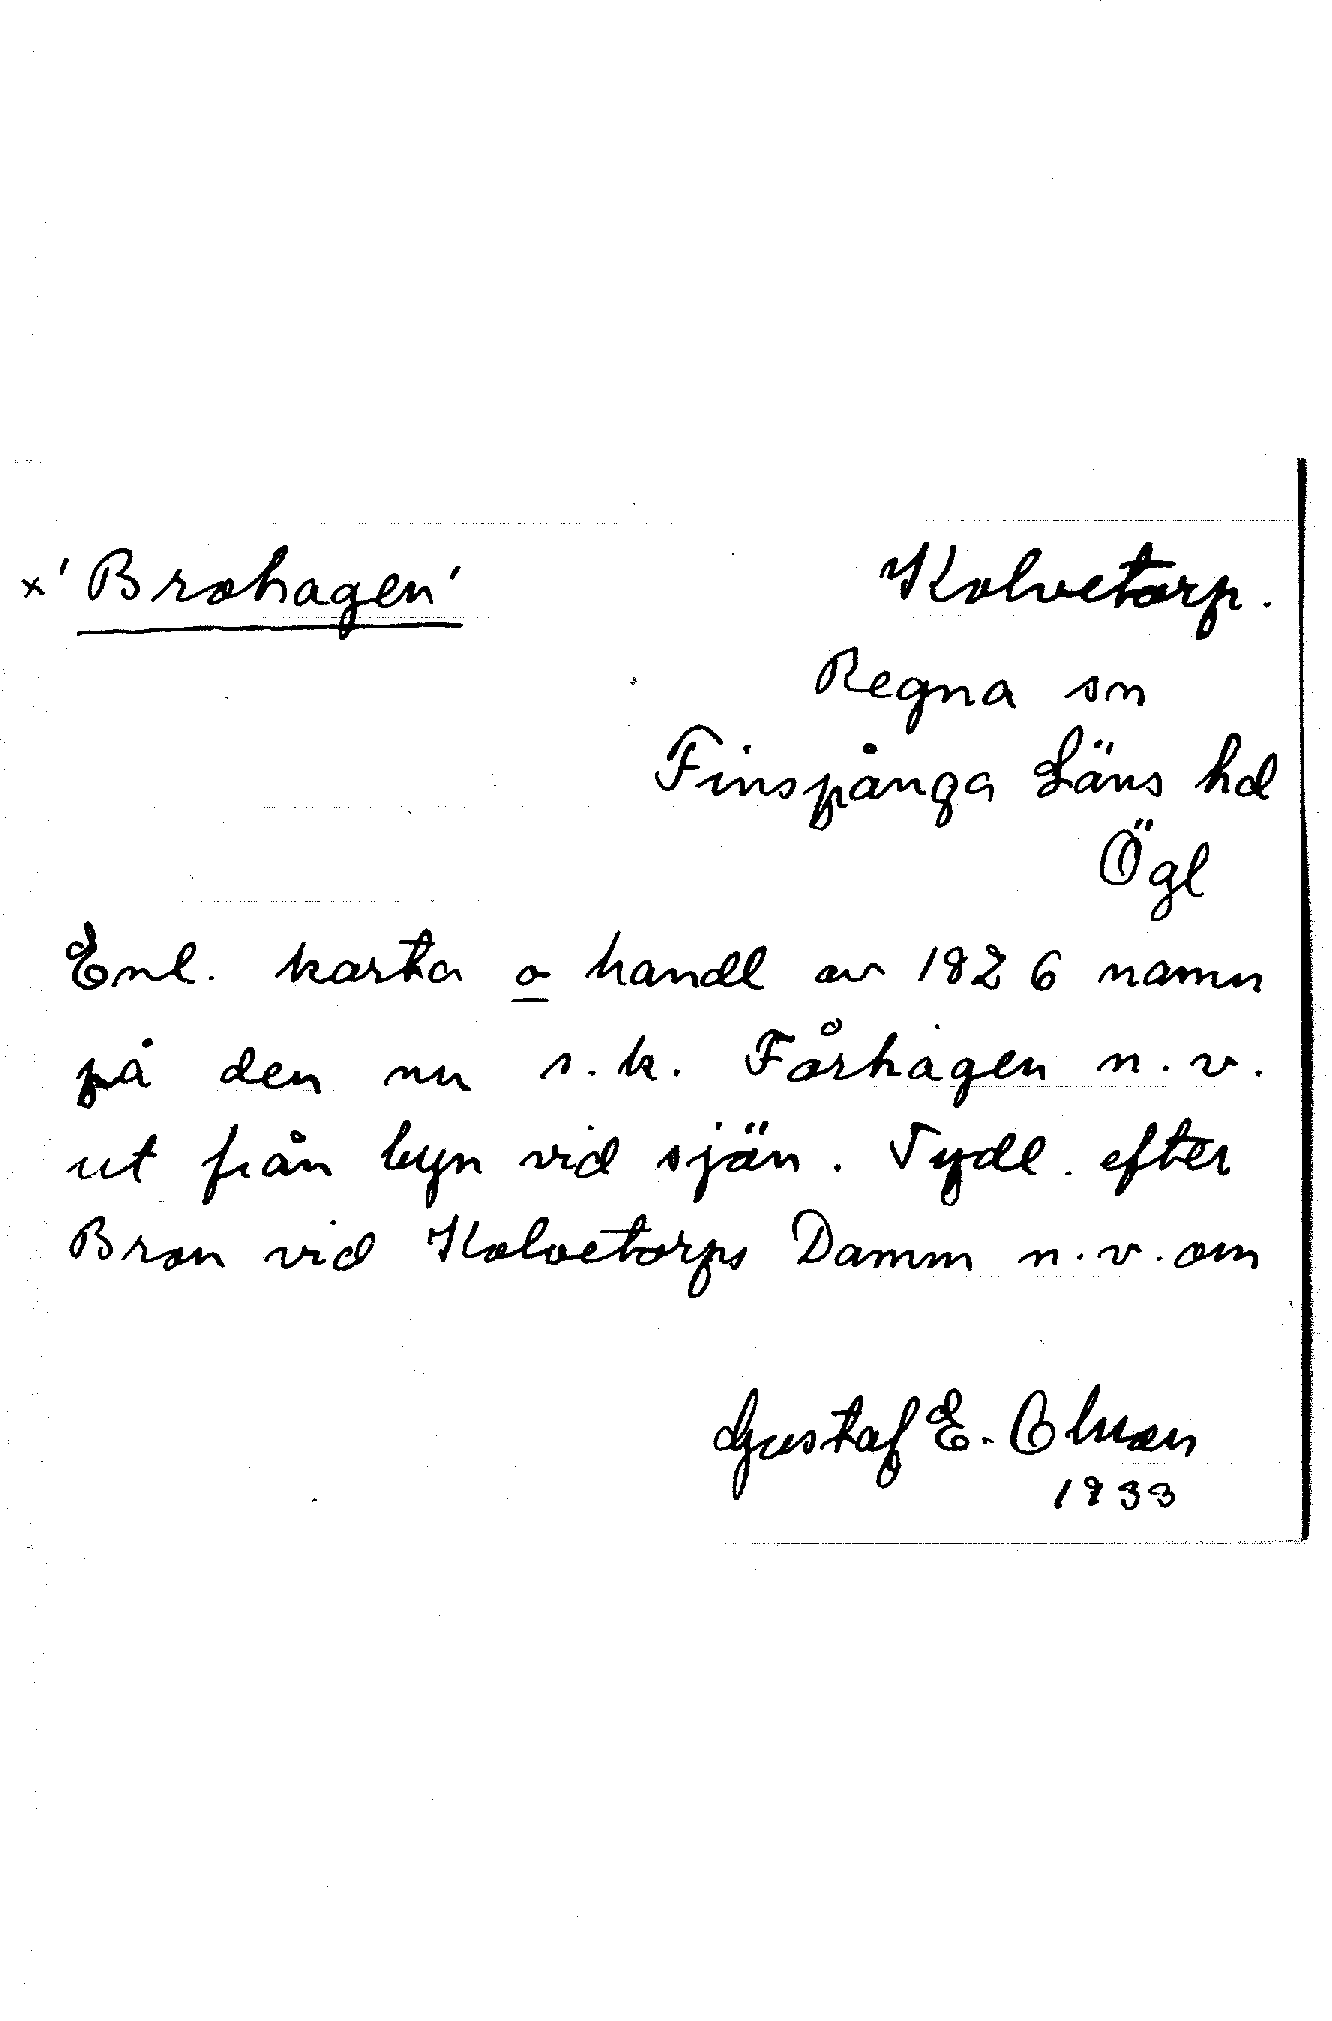 ×'Brohagen'
Kolvetorp.
Regna sn
Finspånga Läns hd
Ögl
Enl. karta o handl av 1826 namn
på den nu s.k. Fårhagen n.v.
ut från byn vid sjön. Tydl. efter
Bron vid Kolvetorps Damm n.v. om
Gustaf E. Olsson
1933